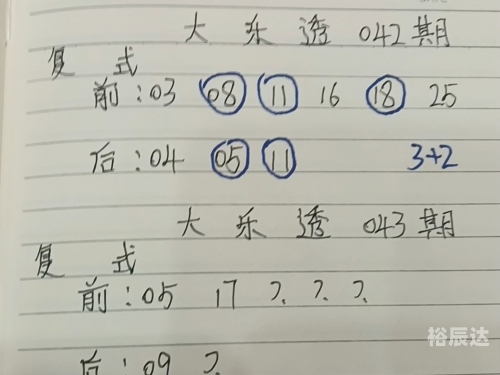 大乐透 042期
复式
前:03 08 11 16 18 25
后:04 05 11 3+2
大乐透 043期
复式
前:05 17 ? ? ?
后:09 ?
裕辰达